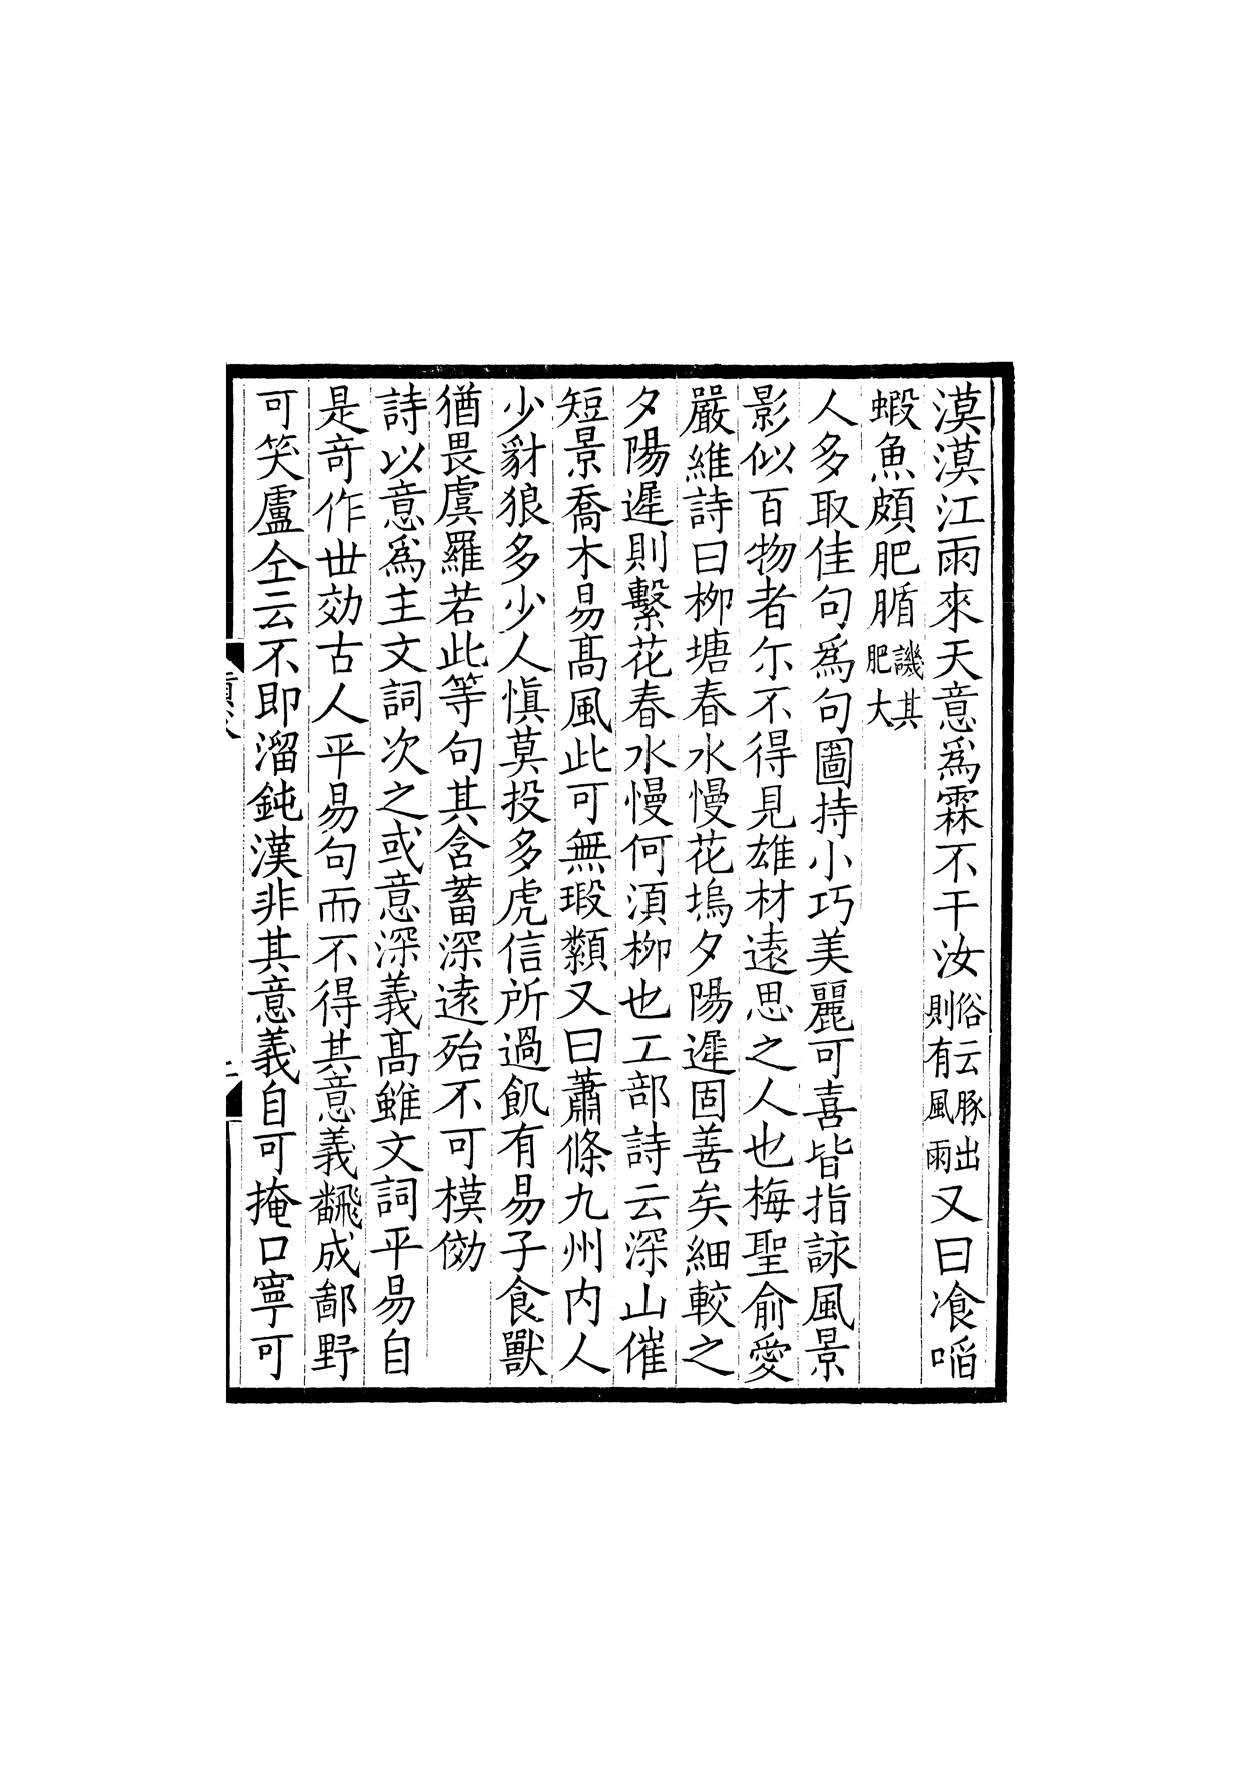 漠漠江雨來天意爲霖不干汝俗云豚出則有風雨又曰飡㗖
蝦魚頗肥腯譏其肥大
人多取佳句爲句圖持小巧美麗可喜皆指詠風景
影似百物者尓不得見雄材遠思之人也梅聖俞愛
嚴維詩曰柳塘春水慢花塢夕陽遲固善矣細較之
夕陽遲則繫花春水慢何湏柳也工部詩云深山催
短景喬木易髙風此可無瑕纇又曰蕭條九州内人
少豺狼多少人慎莫投多虎信所過飢有易子食獸
猶畏虞羅若此等句其含蓄深遠殆不可模傚
詩以意爲主文詞次之或意深義髙雖文詞平易自
是竒作世効古人平易句而不得其意義飜成鄙野
可笑盧仝云不即溜鈍漢非其意義自可掩口寧可